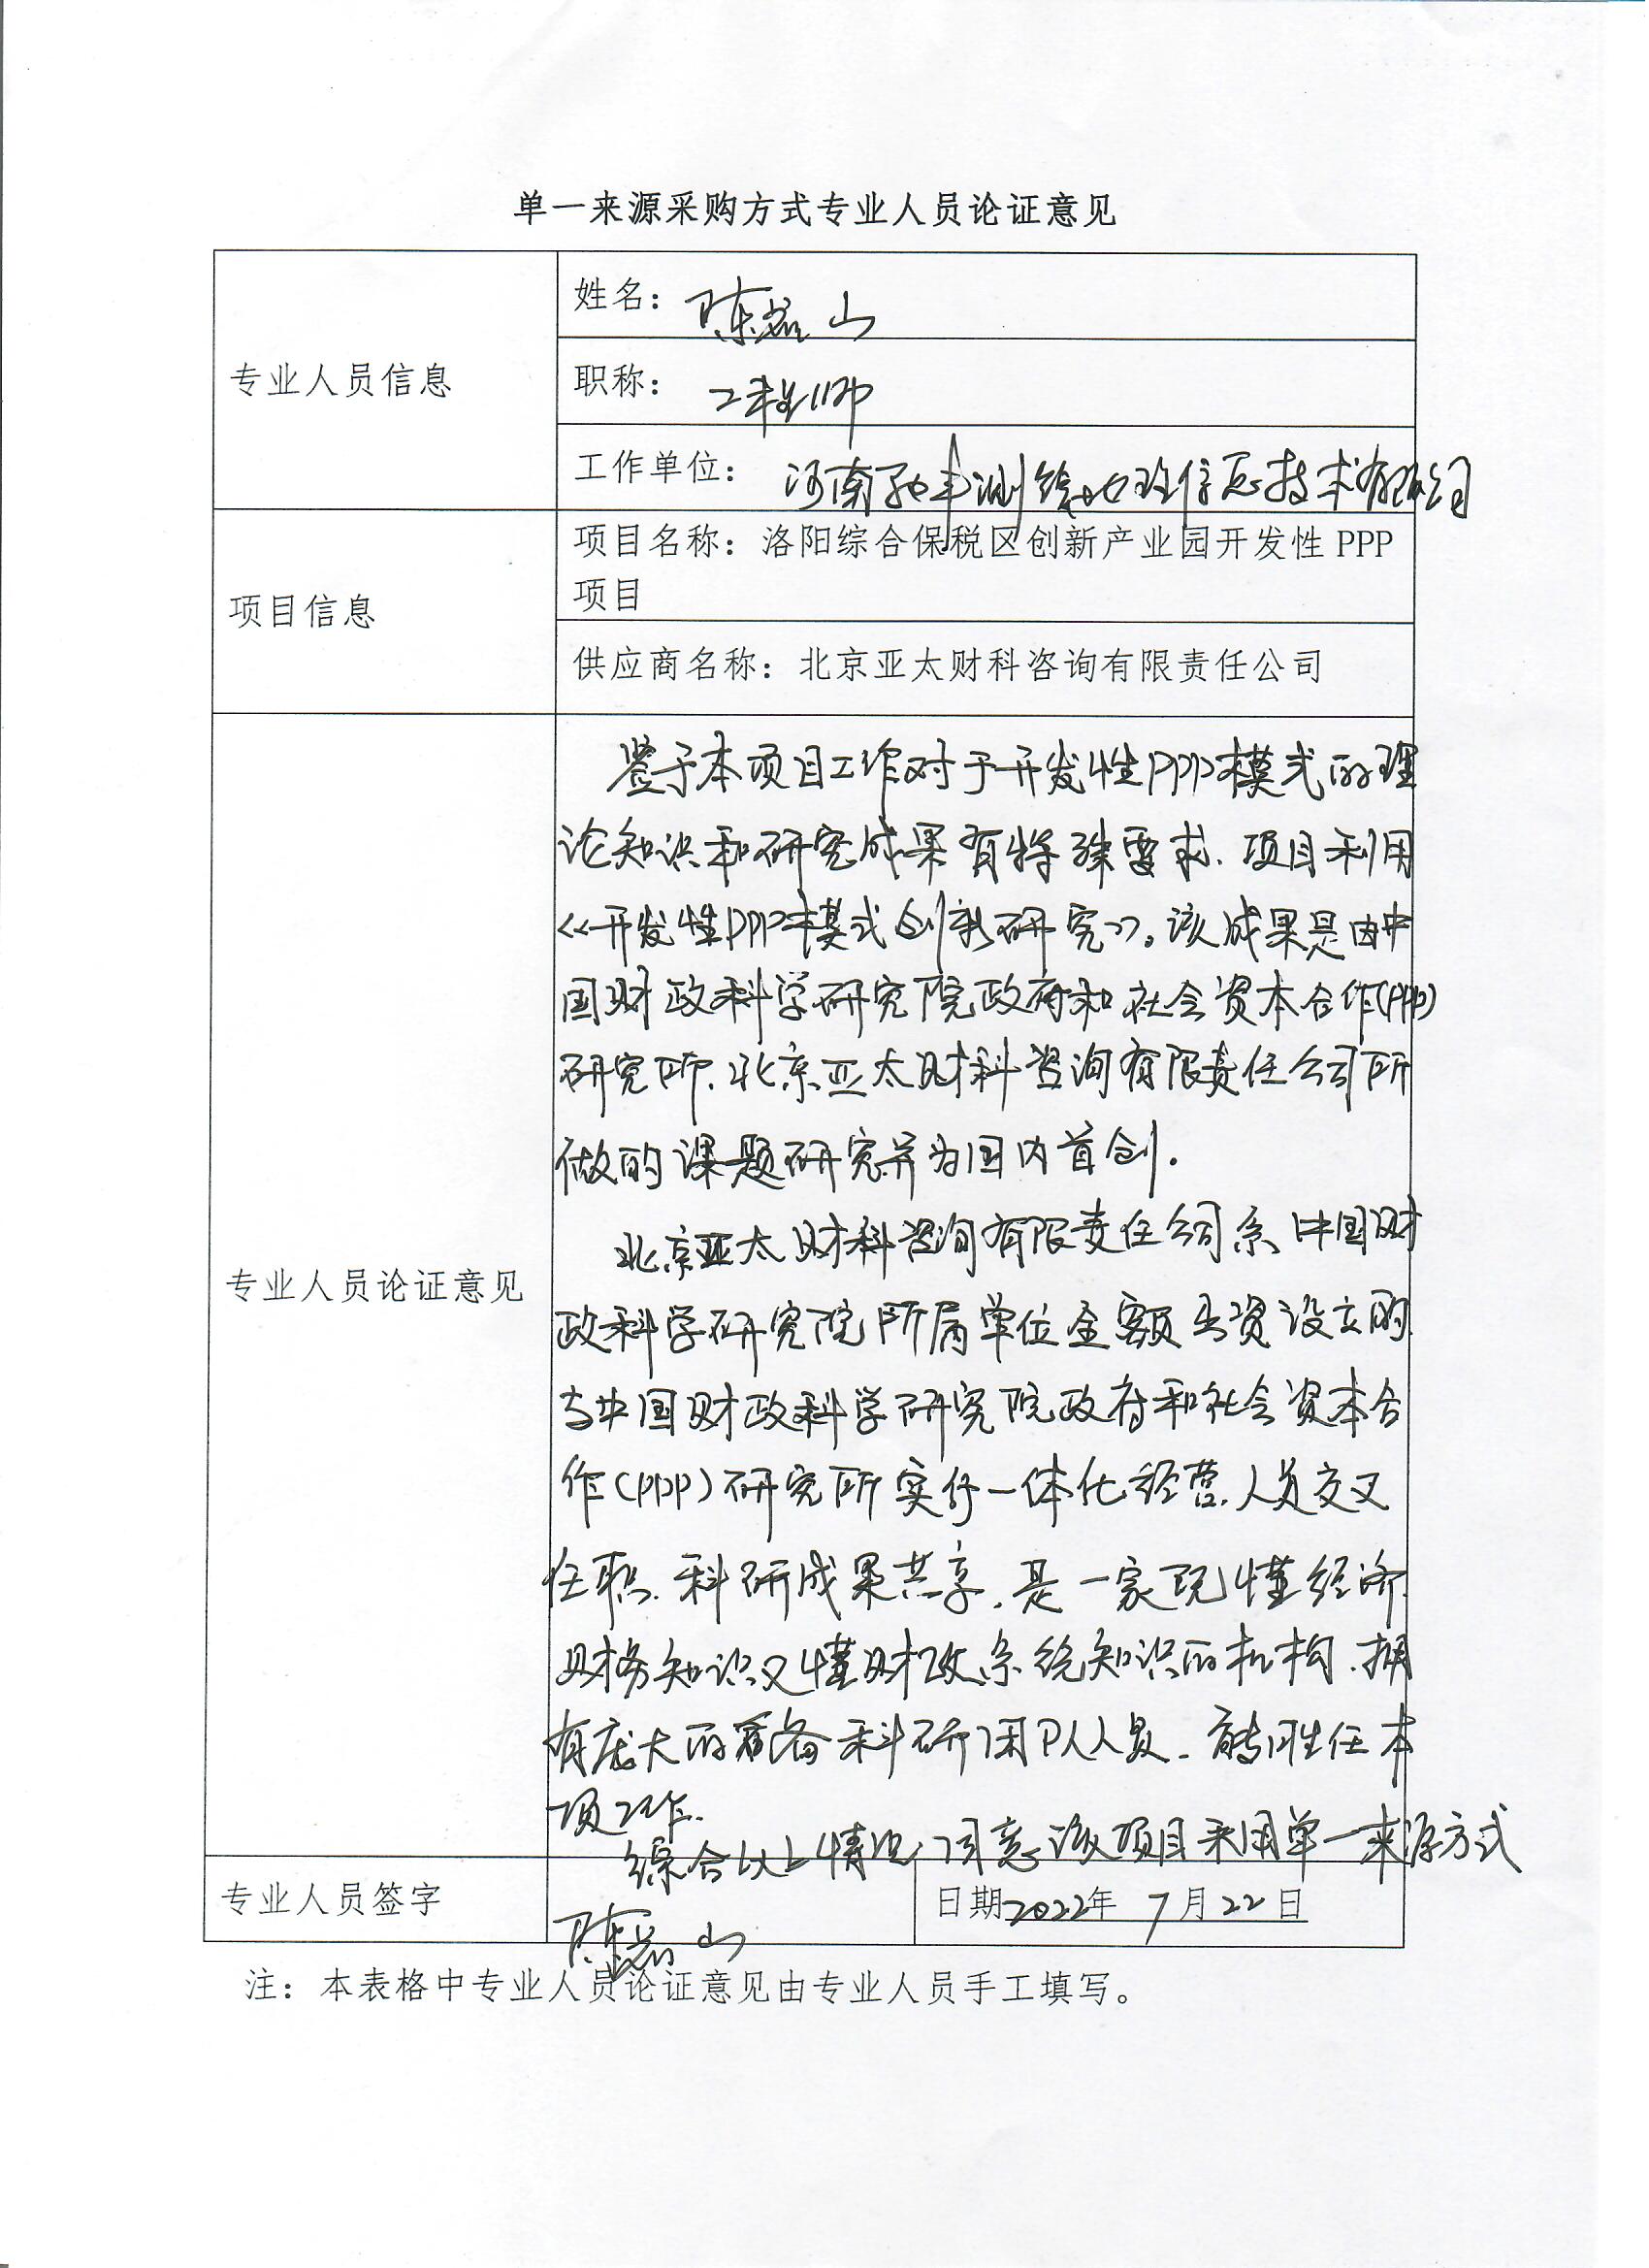 单一来源采购方式专业人员论证意见
专业人员信息
姓名：陈 山
职称：工程师
工作单位：河南 测绘地理信息技术有限公司
项目信息
项目名称：洛阳综合保税区创新产业园开发性 PPP
项目
供应商名称：北京亚太财科咨询有限责任公司
专业人员论证意见
鉴于本项目工作对于开发性PPP模式的理
论知识和研究成果有特殊要求、项目利用
《开发性PPP模式创新研究》。该成果是由中
国财政科学研究院政府和社会资本合作(PPP)
研究所、北京亚太财科咨询有限责任公司所
做的课题研究并为国内首创。
北京亚太财科咨询有限责任公司系中国财
政科学研究院所属单位全额出资设立的
与中国财政科学研究院政府和社会资本合
作(PPP)研究所实行一体化经营、人员交叉
任职、科研成果共享、是一家既懂经济、
财务知识又懂财政系统知识的机构、拥
有庞大的 备科研团队人员、能胜任本
项工作.
综合以上情况，同意该项目采用单一来源方式
专业人员签字
陈 山
日期2022年 7月22日
注：本表格中专业人员论证意见由专业人员手工填写。